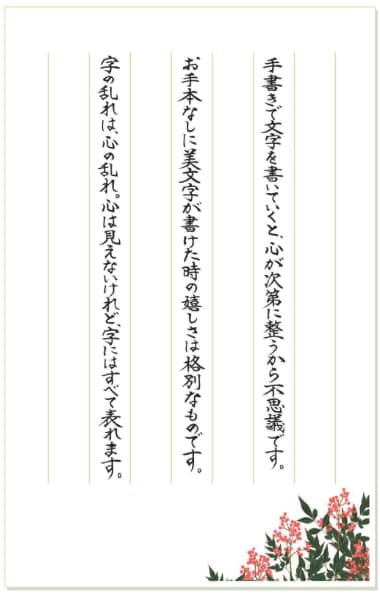 手書きで文字を書いていくと、心が次第に整うから不思議です。
お手本なしに美文字が書けた時の嬉しさは格別なものです。
字の乱れは、心の乱れ。心は見えないけれど、字にはすべて表れます。